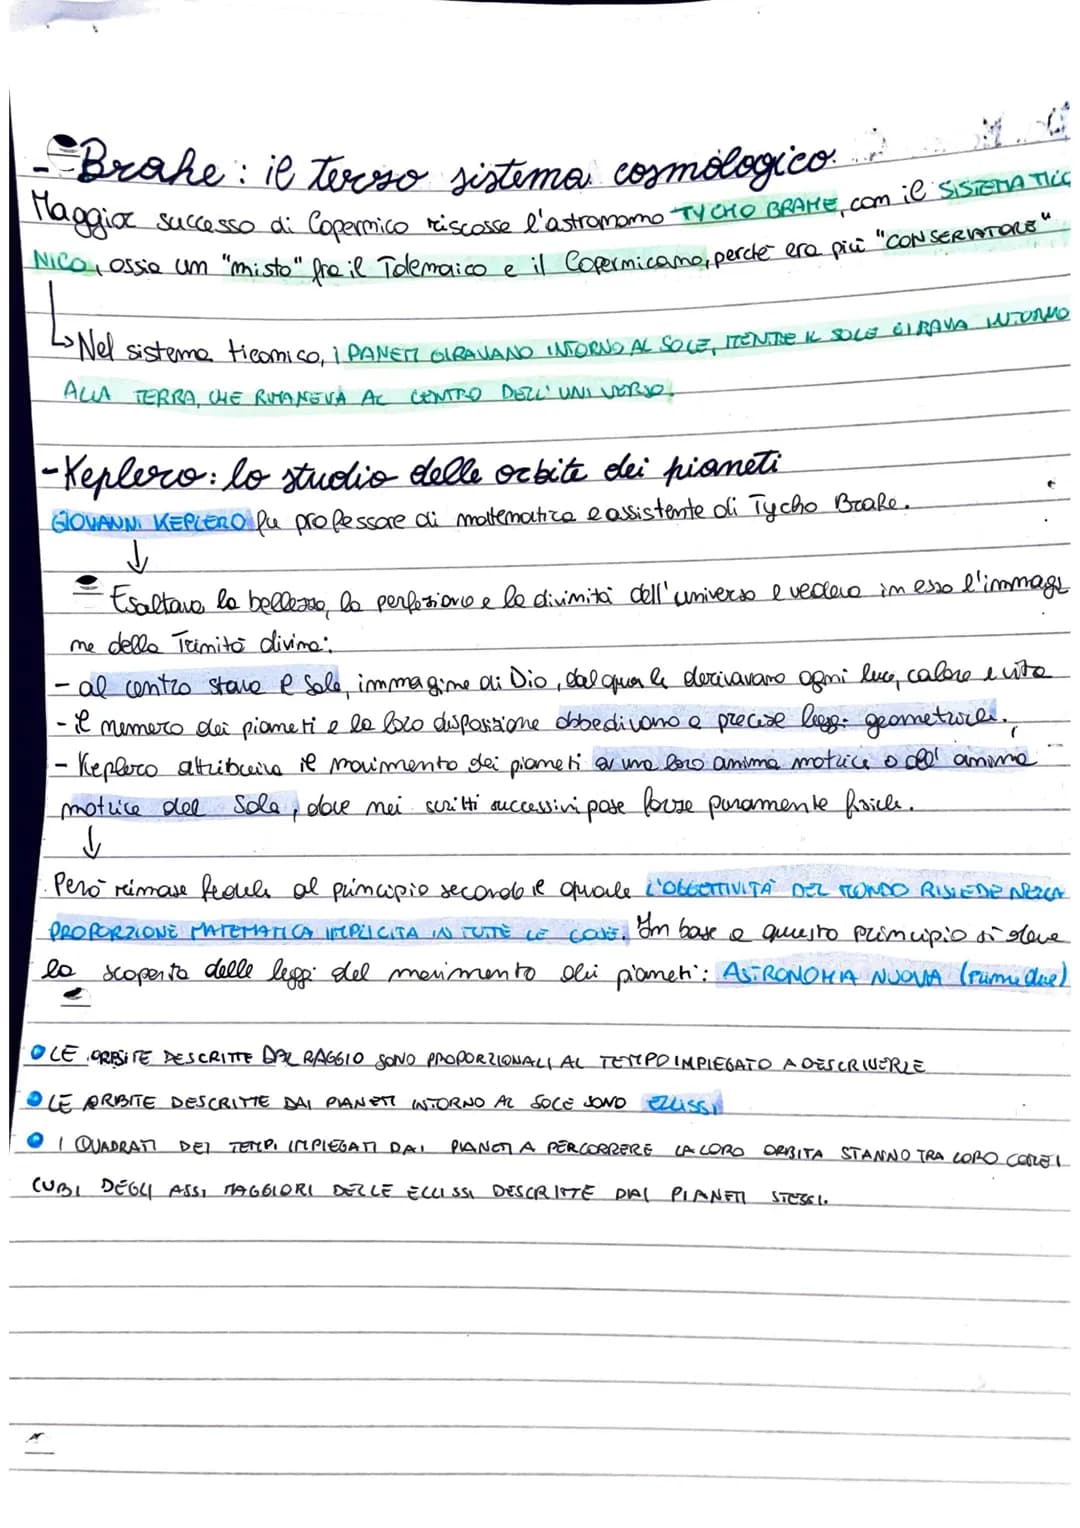 - Brahe: il terzo sistema cosmologico.
Maggior successo di Copernico riscosse l'astronomo TYCHO BRAHE, con il SISTEMA TICO
NICO, ossia un "misto" fra il Tolemaico e il Copernicano, perché era più "CONSERVATORE"
↳ Nel sistema ticonico, I PIANETI GIRAVANO INTORNO AL SOLE, MENTRE IL SOLE GIRAVA INTORNO
ALLA TERRA, CHE RIMANEVA AL CENTRO DELL'UNIVERSO.
- Keplero: lo studio delle orbite dei pianeti
GIOVANNI KEPLERO fu professore di matematica e assistente di Tycho Brahe.
↓
Esaltava la bellezza, la perfezione e la divinità dell'universo e vedeva in esso l'immagi
ne della Trinità divina:
- al centro stava il Sole, immagine di Dio, dal quale derivavano ogni luce, calore e vita
- il numero dei pianeti e la loro disposizione obbedivano a precise leggi geometriche.
- Keplero attribuiva il movimento dei pianeti a una loro anima motrice o all'anima
motrice del Sole, dove nei scritti successivi pose forze puramente fisiche.
↓
Però rimase fedele al principio secondo il quale L'OGGETTIVITÀ DEL MONDO RISIEDE NELLA
PROPORZIONE MATEMATICA IMPLICITA IN TUTTE LE COSE. In base a questo principio si deve
la scoperta delle leggi del movimento dei pianeti: ASTRONOMIA NUOVA (prime due)
LE ORBITE DESCRITTE DAL RAGGIO SONO PROPORZIONALI AL TEMPO IMPIEGATO A DESCRIVERLE
LE ORBITE DESCRITTE DAI PIANETI INTORNO AL SOLE SONO ELLISSI
I QUADRATI DEI TEMPI IMPIEGATI DAI PIANETI A PERCORRERE LA LORO ORBITA STANNO TRA LORO COME I
CUBI DEGLI ASSI MAGGIORI DELLE ELLISSI DESCRITTE DAI PIANETI STESSI.